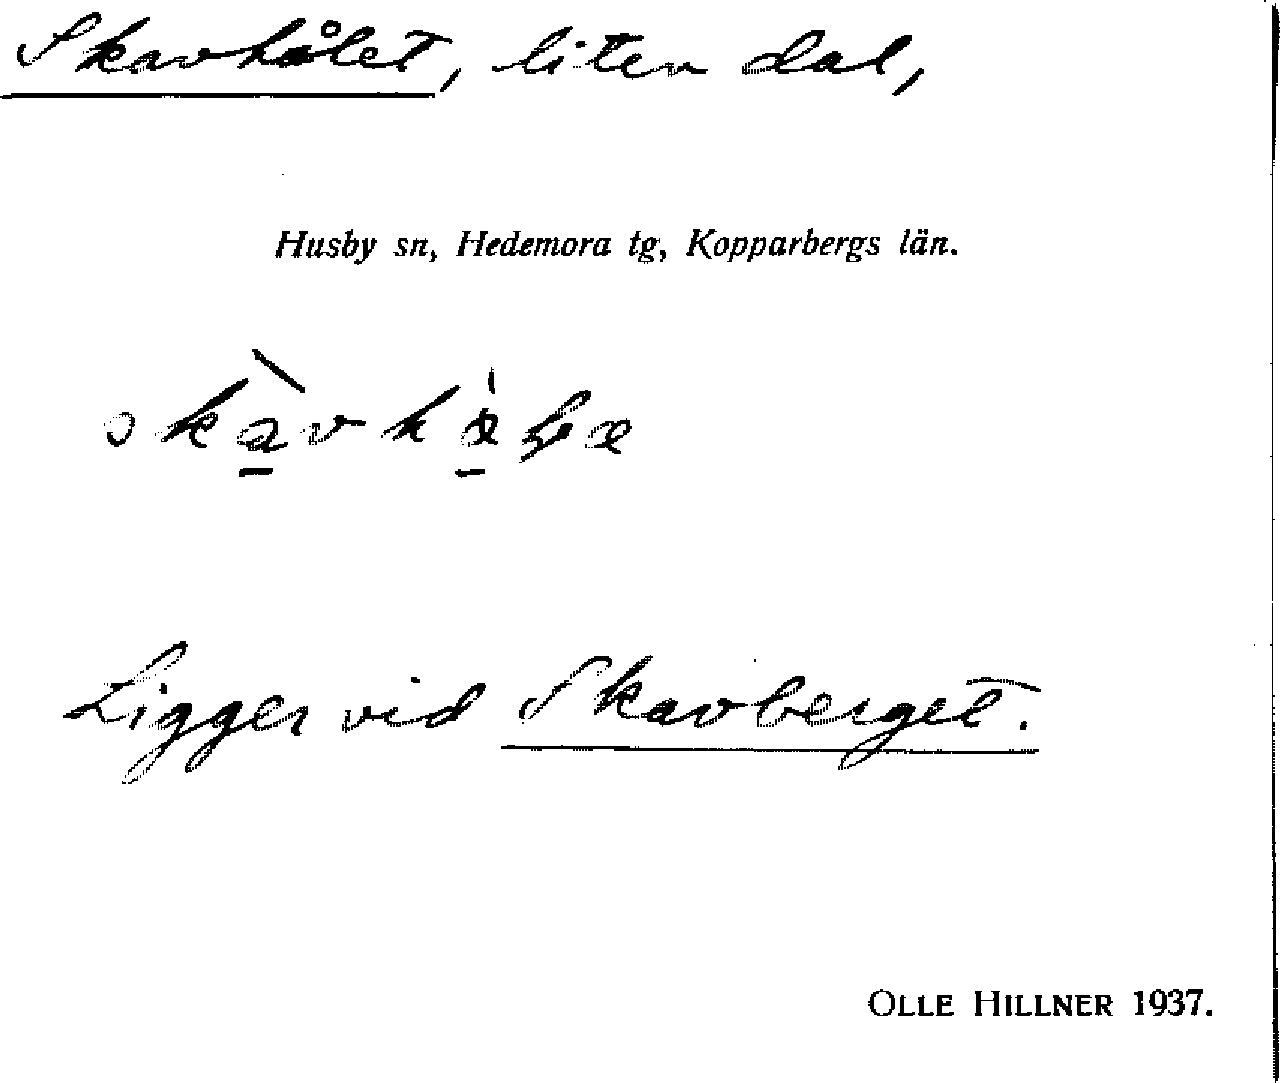 Skavhålet, liten dal,
Husby sn, Hedemora tg, Kopparbergs län.
Ligger vid Skavberget.
OLLE HILLNER 1937.